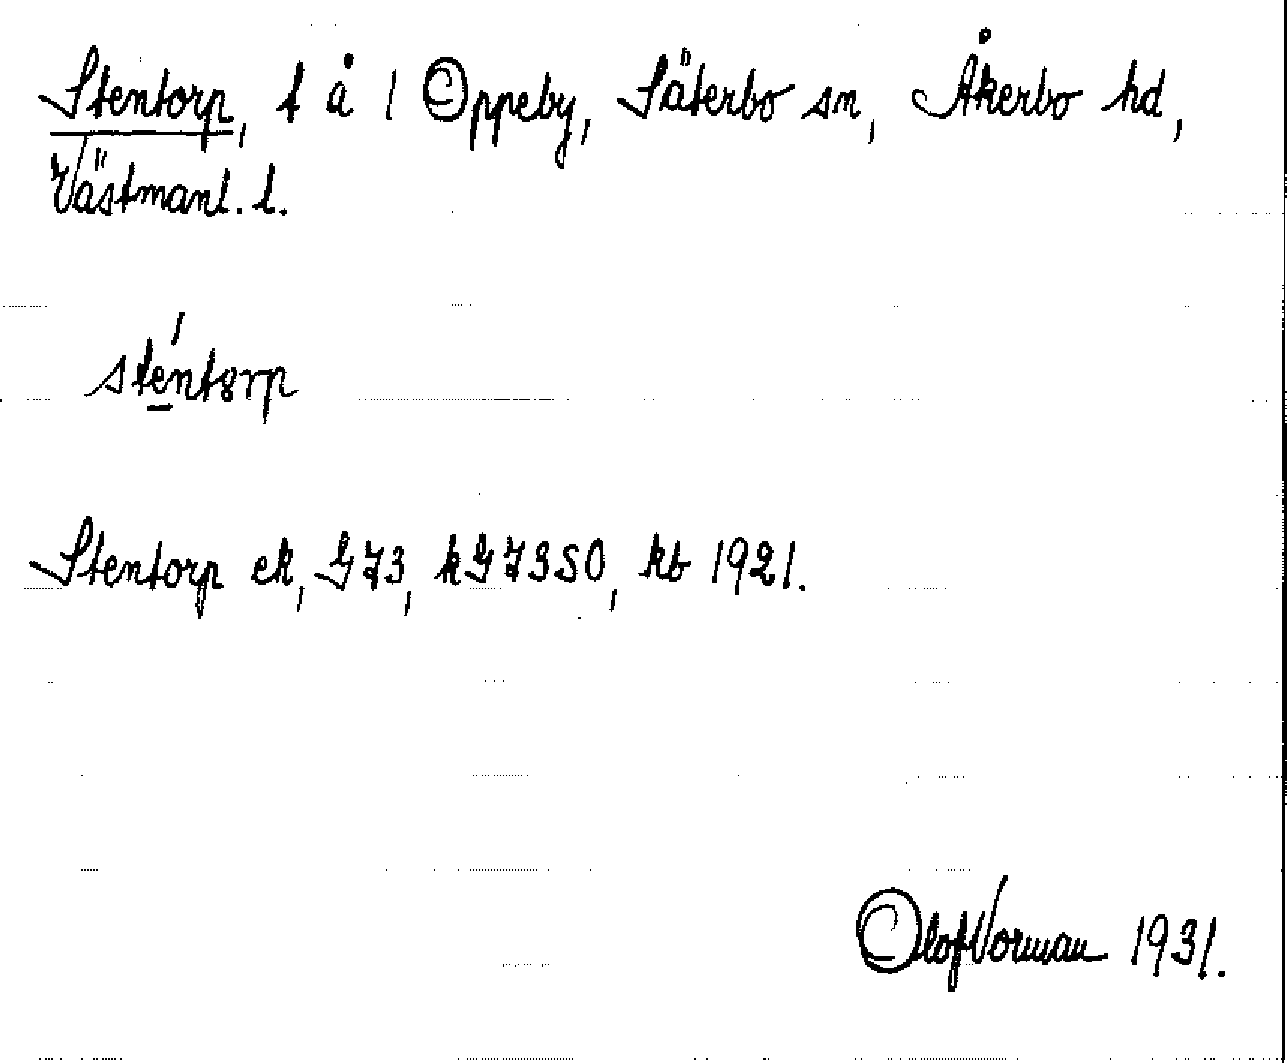 Stentorp, t å 1 Oppeby, Säterbo sn, Åkerbo hd,
Västmanl. l.
sténtorp
Stentorp ek, G73, kG7350, kb 1921.
Olof Vorman 1931.